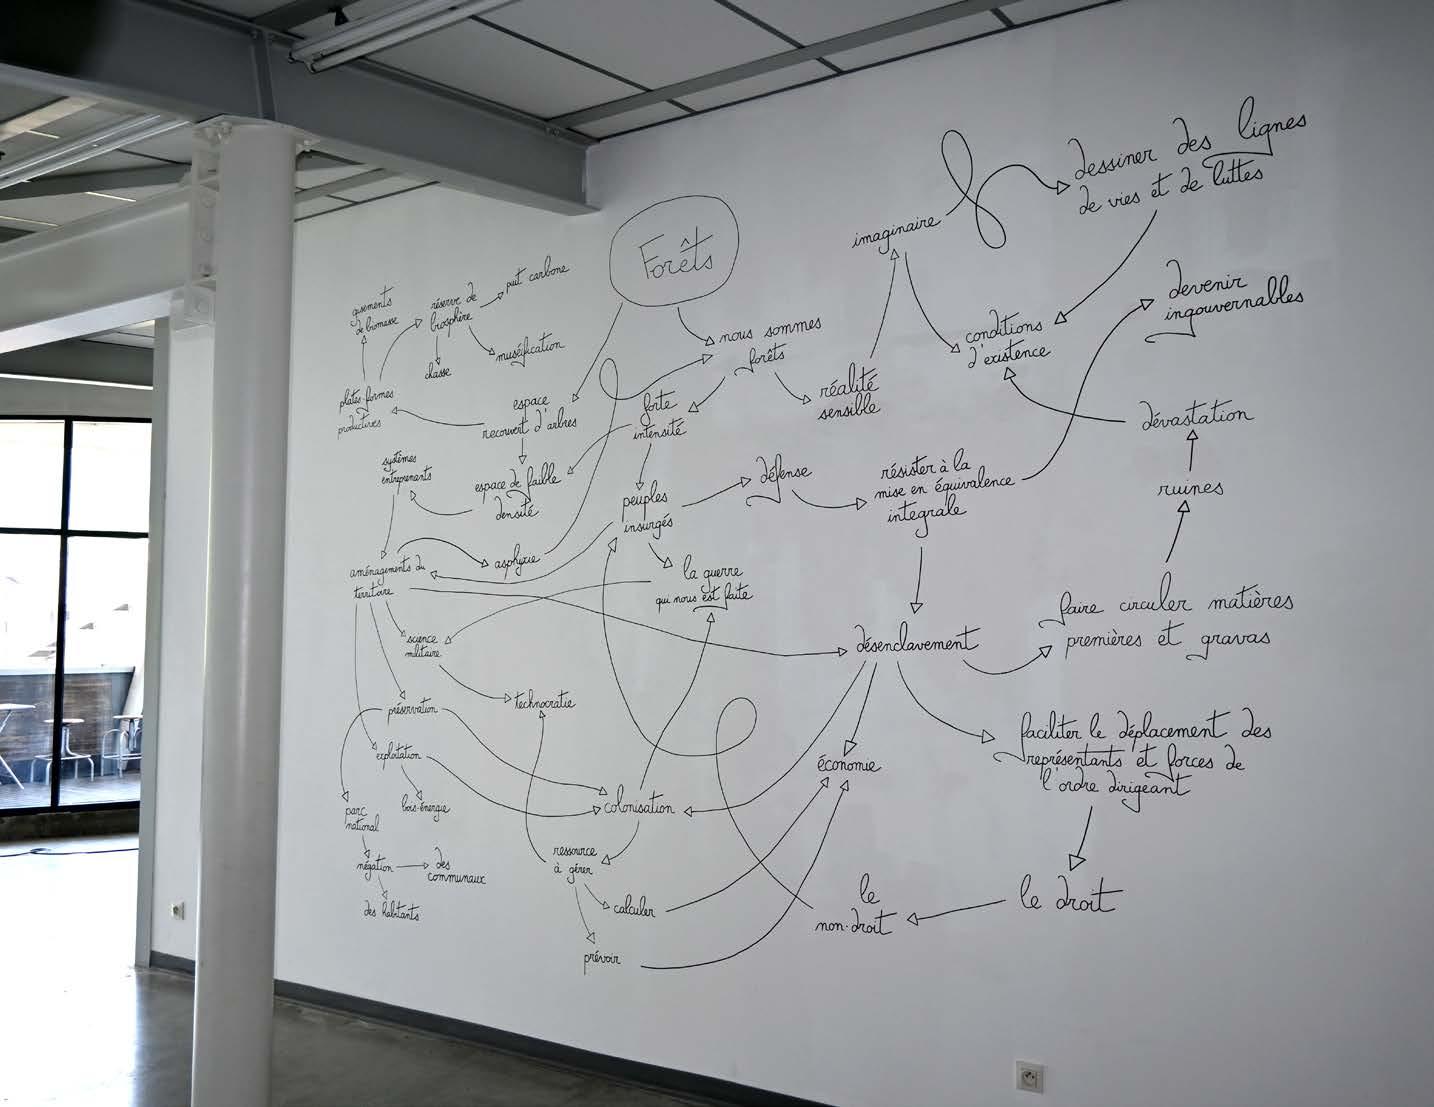 Forêts
gisements
de biomasse
réserve de
biosphère
puit carbone
muséification
chasse
plates-formes
productives
espace
recouvert d'arbres
espace de faible
densité
systèmes
entreprenants
aménagements du
territoire
asphyxie
science
militaire
technocratie
préservation
exploitation
bois-énergie
parc
national
négation
des
communaux
des habitants
nous sommes
forêts
forte
intensité
réalité
sensible
peuples
insurgés
défense
la guerre
qui nous est faite
colonisation
ressource
à gérer
calculer
prévoir
imaginaire
dessiner des lignes
de vies et de luttes
conditions
d'existence
devenir
ingouvernables
dévastation
ruines
résister à la
mise en équivalence
integrale
désenclavement
faire circuler matières
premières et gravas
économie
faciliter le déplacement des
représentants et forces de
l'ordre dirigeant
le droit
le
non-droit